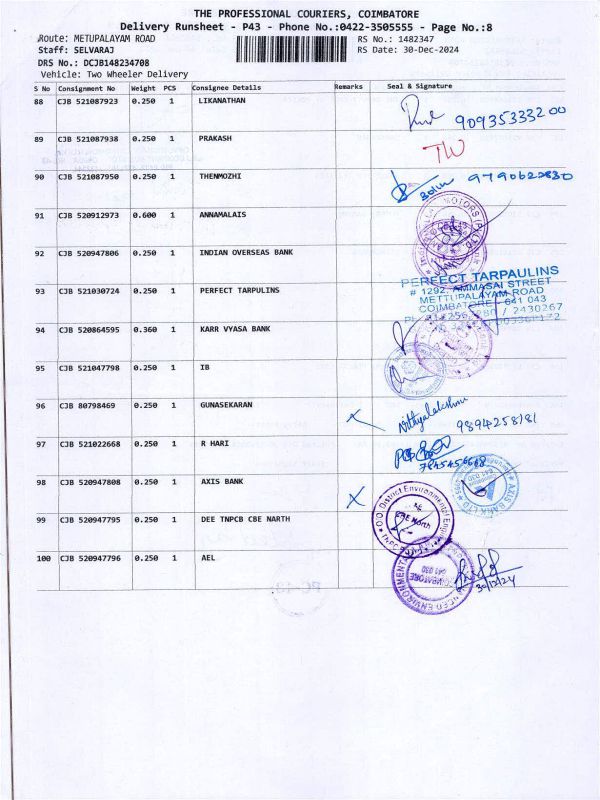 THE PROFESSIONAL COURIERS, COIMBATORE
Delivery Runsheet - P43 - Phone No.:0422-3505555 - Page No.:8
Route: METUPALAYAM ROAD RS No.: 1482347
Staff: SELVARAJ RS Date: 30-Dec-2024
DRS No.: DCJB148234708
Vehicle: Two Wheeler Delivery
S No Consignment No Weight PCS Consignee Details Remarks Seal & Signature
88 CJB 521087923 0.250 1 LIKANATHAN
9093533332 00
89 CJB 521087938 0.250 1 PRAKASH
TW
90 CJB 521087950 0.250 1 THENMOZHI
9790622830
91 CJB 520912973 0.600 1 ANNAMALAIS
MOTORS
92 CJB 520947806 0.250 1 INDIAN OVERSEAS BANK
93 CJB 521030724 0.250 1 PERFECT TARPULINS
PERFECT TARPAULINS
# 1292, AMMASAI STREET
METTUPALAYAM ROAD
COIMBATORE - 641 043
/ 2430267
94 CJB 520864595 0.360 1 KARR VYASA BANK
95 CJB 521047798 0.250 1 IB
96 CJB 80798469 0.250 1 GUNASEKARAN
Nithyalakshmi
9894258181
97 CJB 521022668 0.250 1 R HARI
7845456668
98 CJB 520947808 0.250 1 AXIS BANK
AXIS BANK LTD
99 CJB 520947795 0.250 1 DEE TNPCB CBE NARTH
District Environmental
CBE North
100 CJB 520947796 0.250 1 AEL
COIMBATORE
641 030
30/12/24